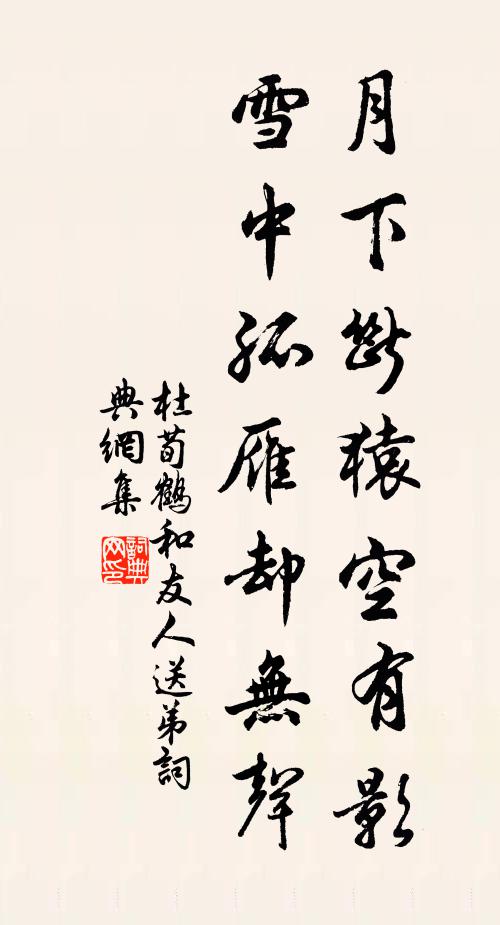 月下斷猿空有影
雪中孤雁却無聲
杜荀鶴和友人送弟詞
典網集
詞典網印